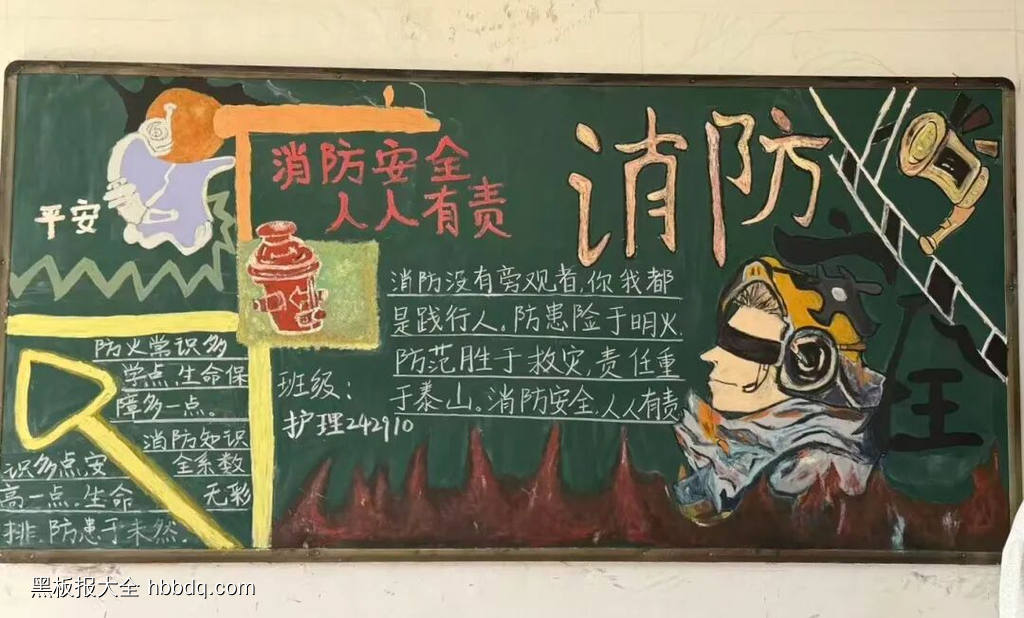 消防
安全
消防安全
人人有责
平安
消防没有旁观者,你我都
是践行人。防患险于明火,
防范胜于救灾,责任重
于泰山。消防安全,人人有责
班级:
护理242910
防火常识多
学点,生命保
障多一点。
消防知识
识多点安 全系数
高一点,生命 无彩
排,防患于未然.
黑板报大全 hbbdq.com